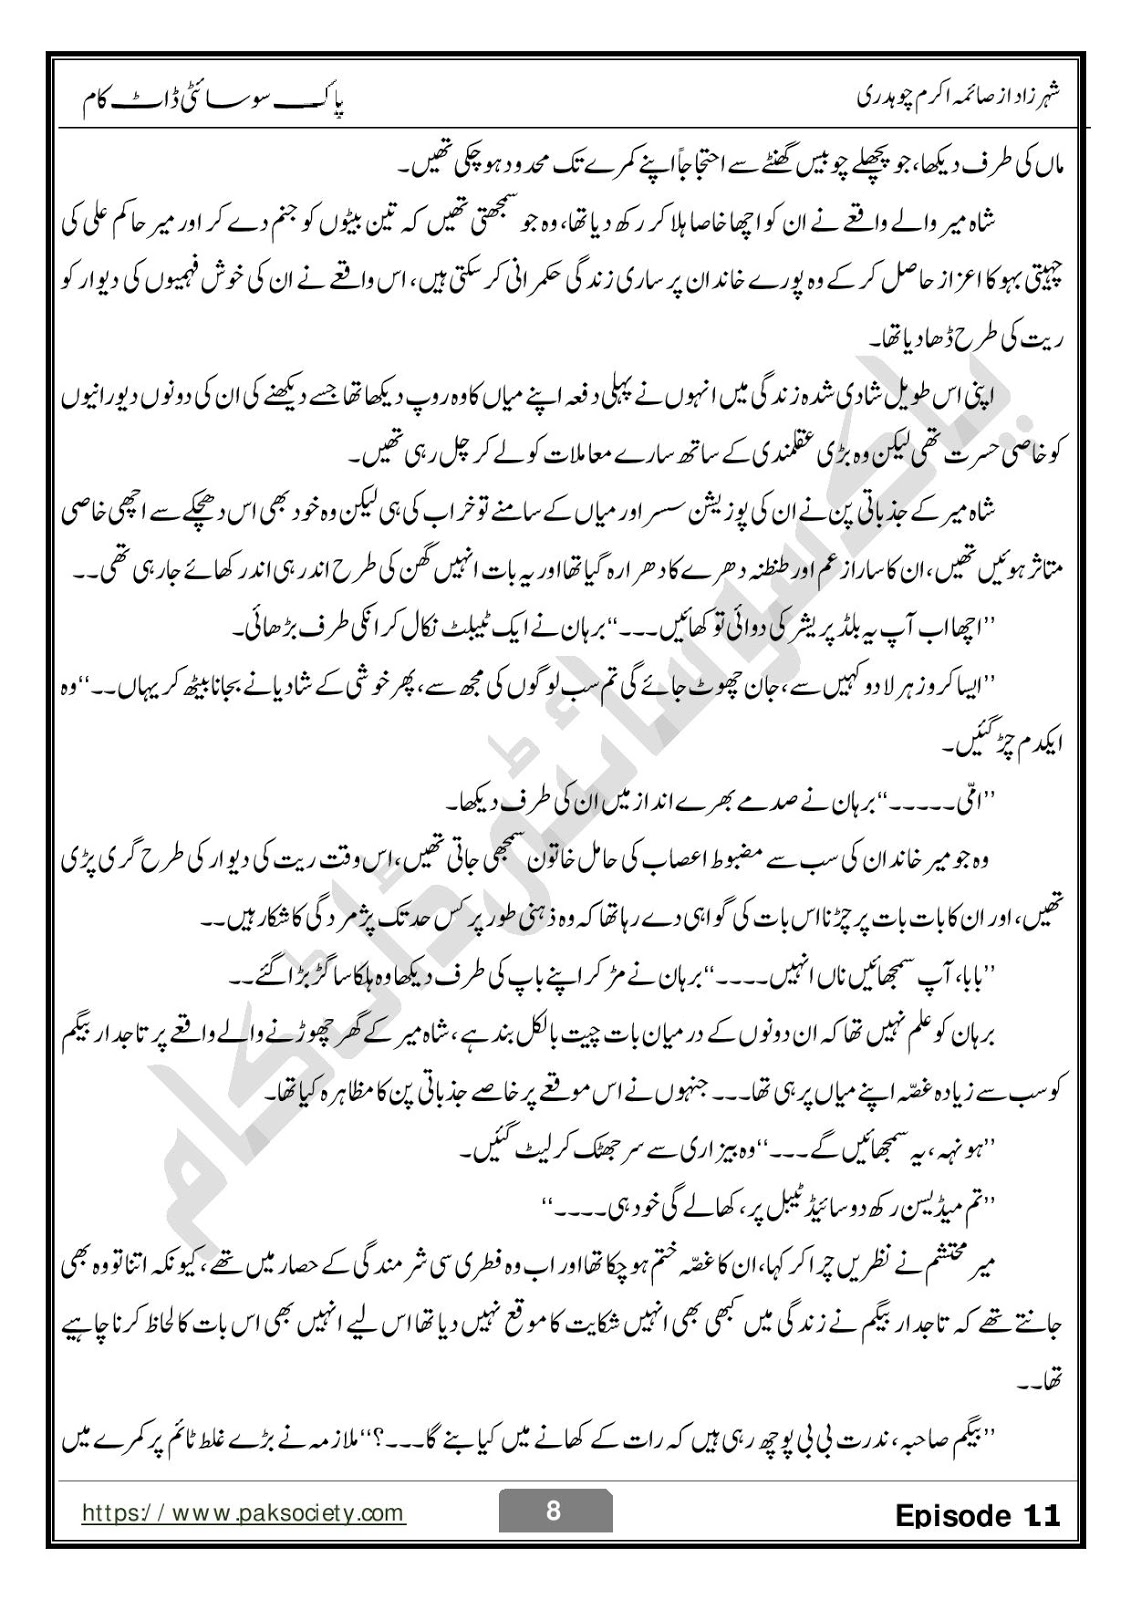 شہرزاد از صائمہ اکرم چوہدری
پاک سوسائٹی ڈاٹ کام
ماں کی طرف دیکھا، جو پچھلے چوبیس گھنٹے سے احتجاجاً اپنے کمرے تک محدود ہو چکی تھیں۔
شاہ میر والے واقعے نے ان کو اچھا خاصا ہلا کر رکھ دیا تھا، وہ جو سمجھتی تھیں کہ تین بیٹوں کو جنم دے کر اور میر حاکم علی کی
چہیتی بہو کا اعزاز حاصل کر کے وہ پورے خاندان پر ساری زندگی حکمرانی کر سکتی ہیں، اس واقعے نے ان کی خوش فہمیوں کی دیوار کو
ریت کی طرح ڈھا دیا تھا۔
اپنی اس طویل شادی شدہ زندگی میں انہوں نے پہلی دفعہ اپنے میاں کا وہ روپ دیکھا تھا جسے دیکھنے کی ان کی دونوں دیورانیوں
کو خاصی حسرت تھی لیکن وہ بڑی عقلمندی کے ساتھ سارے معاملات کو لے کر چل رہی تھیں۔
شاہ میر کے جذباتی پن نے ان کی پوزیشن سسر اور میاں کے سامنے تو خراب کی ہی لیکن وہ خود بھی اس دھچکے سے اچھی خاصی
متاثر ہوئیں تھیں، ان کا سارا زعم اور طنطنہ دھرے کا دھرا رہ گیا تھا اور یہ بات انہیں گھن کی طرح اندر ہی اندر کھائے جا رہی تھی۔۔
’’اچھا اب آپ یہ بلڈ پریشر کی دوائی تو کھائیں۔۔۔‘‘ برہان نے ایک ٹیبلٹ نکال کر انکی طرف بڑھائی۔
’’ایسا کرو زہر لا دو کہیں سے، جان چھوٹ جائے گی تم سب لوگوں کی مجھ سے، پھر خوشی کے شادیانے بجانا بیٹھ کر یہاں۔۔‘‘ وہ
ایکدم چڑ گئیں۔
’’امّی۔۔۔۔۔‘‘ برہان نے صدمے بھرے انداز میں ان کی طرف دیکھا۔
وہ جو میر خاندان کی سب سے مضبوط اعصاب کی حامل خاتون سمجھی جاتی تھیں، اس وقت ریت کی دیوار کی طرح گری پڑی
تھیں، اور ان کا بات بات پر چڑنا اس بات کی گواہی دے رہا تھا کہ وہ ذہنی طور پر کس حد تک پژمردگی کا شکار ہیں۔۔
’’بابا، آپ سمجھائیں ناں انہیں۔۔۔۔‘‘ برہان نے مڑ کر اپنے باپ کی طرف دیکھا وہ ہلکا سا گڑبڑا گئے۔۔
برہان کو علم نہیں تھا کہ ان دونوں کے درمیان بات چیت بالکل بند ہے، شاہ میر کے گھر چھوڑنے والے واقعے پر تاجدار بیگم
کو سب سے زیادہ غصّہ اپنے میاں پر ہی تھا۔۔۔ جنہوں نے اس موقعے پر خاصے جذباتی پن کا مظاہرہ کیا تھا۔
’’ہونہہ، یہ سمجھائیں گے۔۔۔‘‘ وہ بیزاری سے سر جھٹک کر لیٹ گئیں۔
’’تم میڈیسن رکھ دو سائیڈ ٹیبل پر، کھا لے گی خود ہی۔۔۔۔‘‘
میر محتشم نے نظریں چرا کر کہا، ان کا غصّہ ختم ہو چکا تھا اور اب وہ فطری سی شرمندگی کے حصار میں تھے، کیونکہ اتنا تو وہ بھی
جانتے تھے کہ تاجدار بیگم نے زندگی میں کبھی بھی انہیں شکایت کا موقع نہیں دیا تھا اس لیے انہیں بھی اس بات کا لحاظ کرنا چاہیے
تھا۔۔
’’بیگم صاحبہ، ندرت بی بی پوچھ رہی ہیں کہ رات کے کھانے میں کیا بنے گا۔۔۔؟‘‘ ملازمہ نے بڑے غلط ٹائم پر کمرے میں
https://www.paksociety.com
8
Episode 11
پاک سوسائٹی ڈاٹ کام